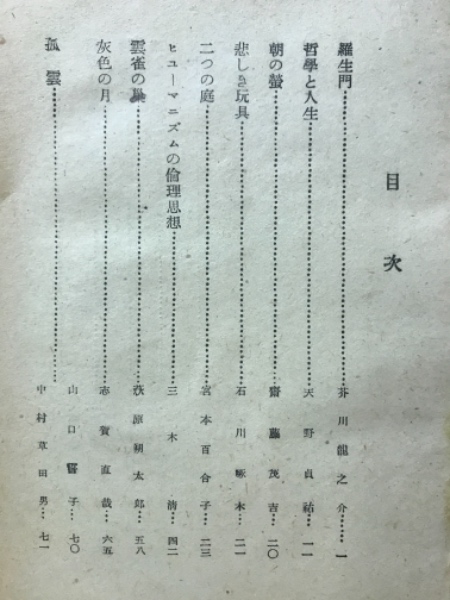 目次
羅生門……芥川龍之介……一
哲學と人生……天野貞祐…一一
朝の螢……齋藤茂吉…二〇
悲しき玩具……石川啄木…二一
二つの庭……宮本百合子…二三
ヒューマニズムの倫理思想……三木清…四二
雲雀の巢……萩原朔太郎…五八
灰色の月……志賀直哉…六五
山口誓子…七〇
孤雲……中村草田男…七一